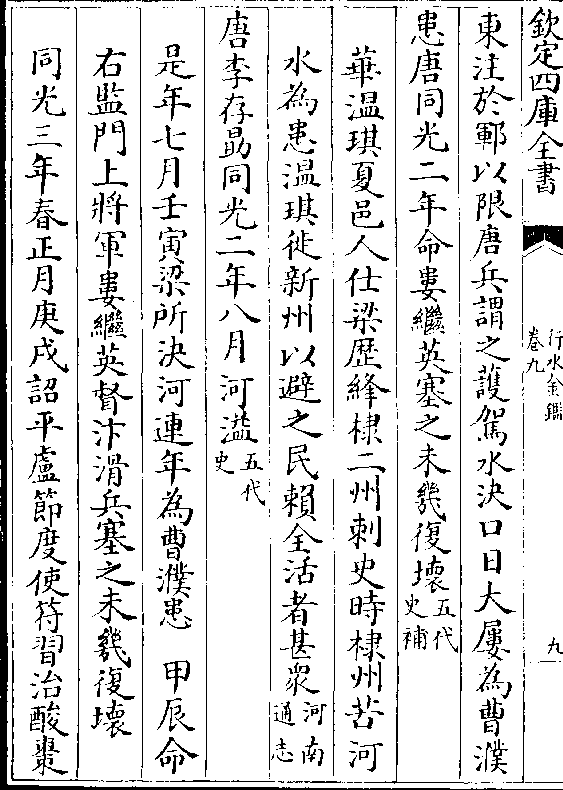 欽定四庫全書
行水金鑑
卷九
九
東注於鄆以限唐兵謂之護駕水決口日大屢為曹濮
患唐同光二年命婁繼英塞之未幾復壞五代史補
華温琪夏邑人仕梁歷絳棣二州刺史時棣州苦河
水為患温琪徙新州以避之民賴全活者甚衆河南通志
唐李存勗同光二年八月河溢五代史
是年七月壬寅梁所決河連年為曹濮患 甲辰命
右監門上將軍婁繼英督汴滑兵塞之未幾復壞
同光三年春正月庚戌詔平盧節度使符習治酸棗